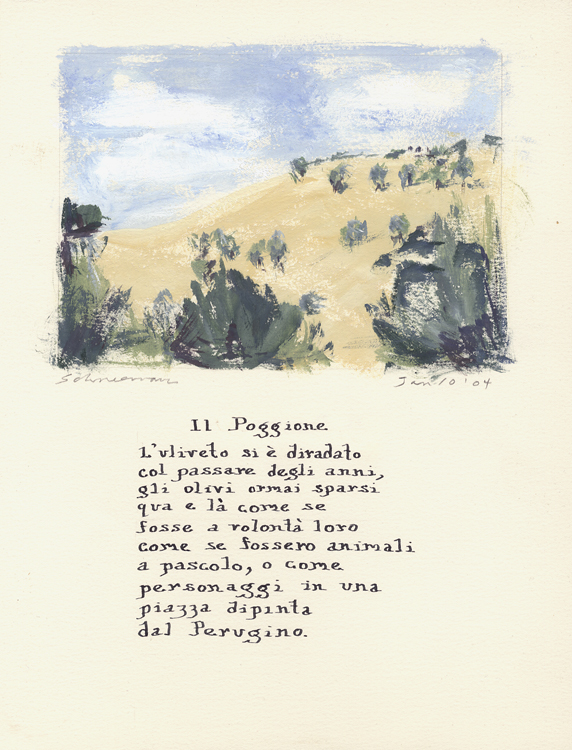 Schneeman
Jan 10 '04
Il Poggione
L'uliveto si è diradato
col passare degli anni,
gli olivi ormai sparsi
qua e là come se
fosse a volontà loro
come se fossero animali
a pascolo, o come
personaggi in una
piazza dipinta
dal Perugino.